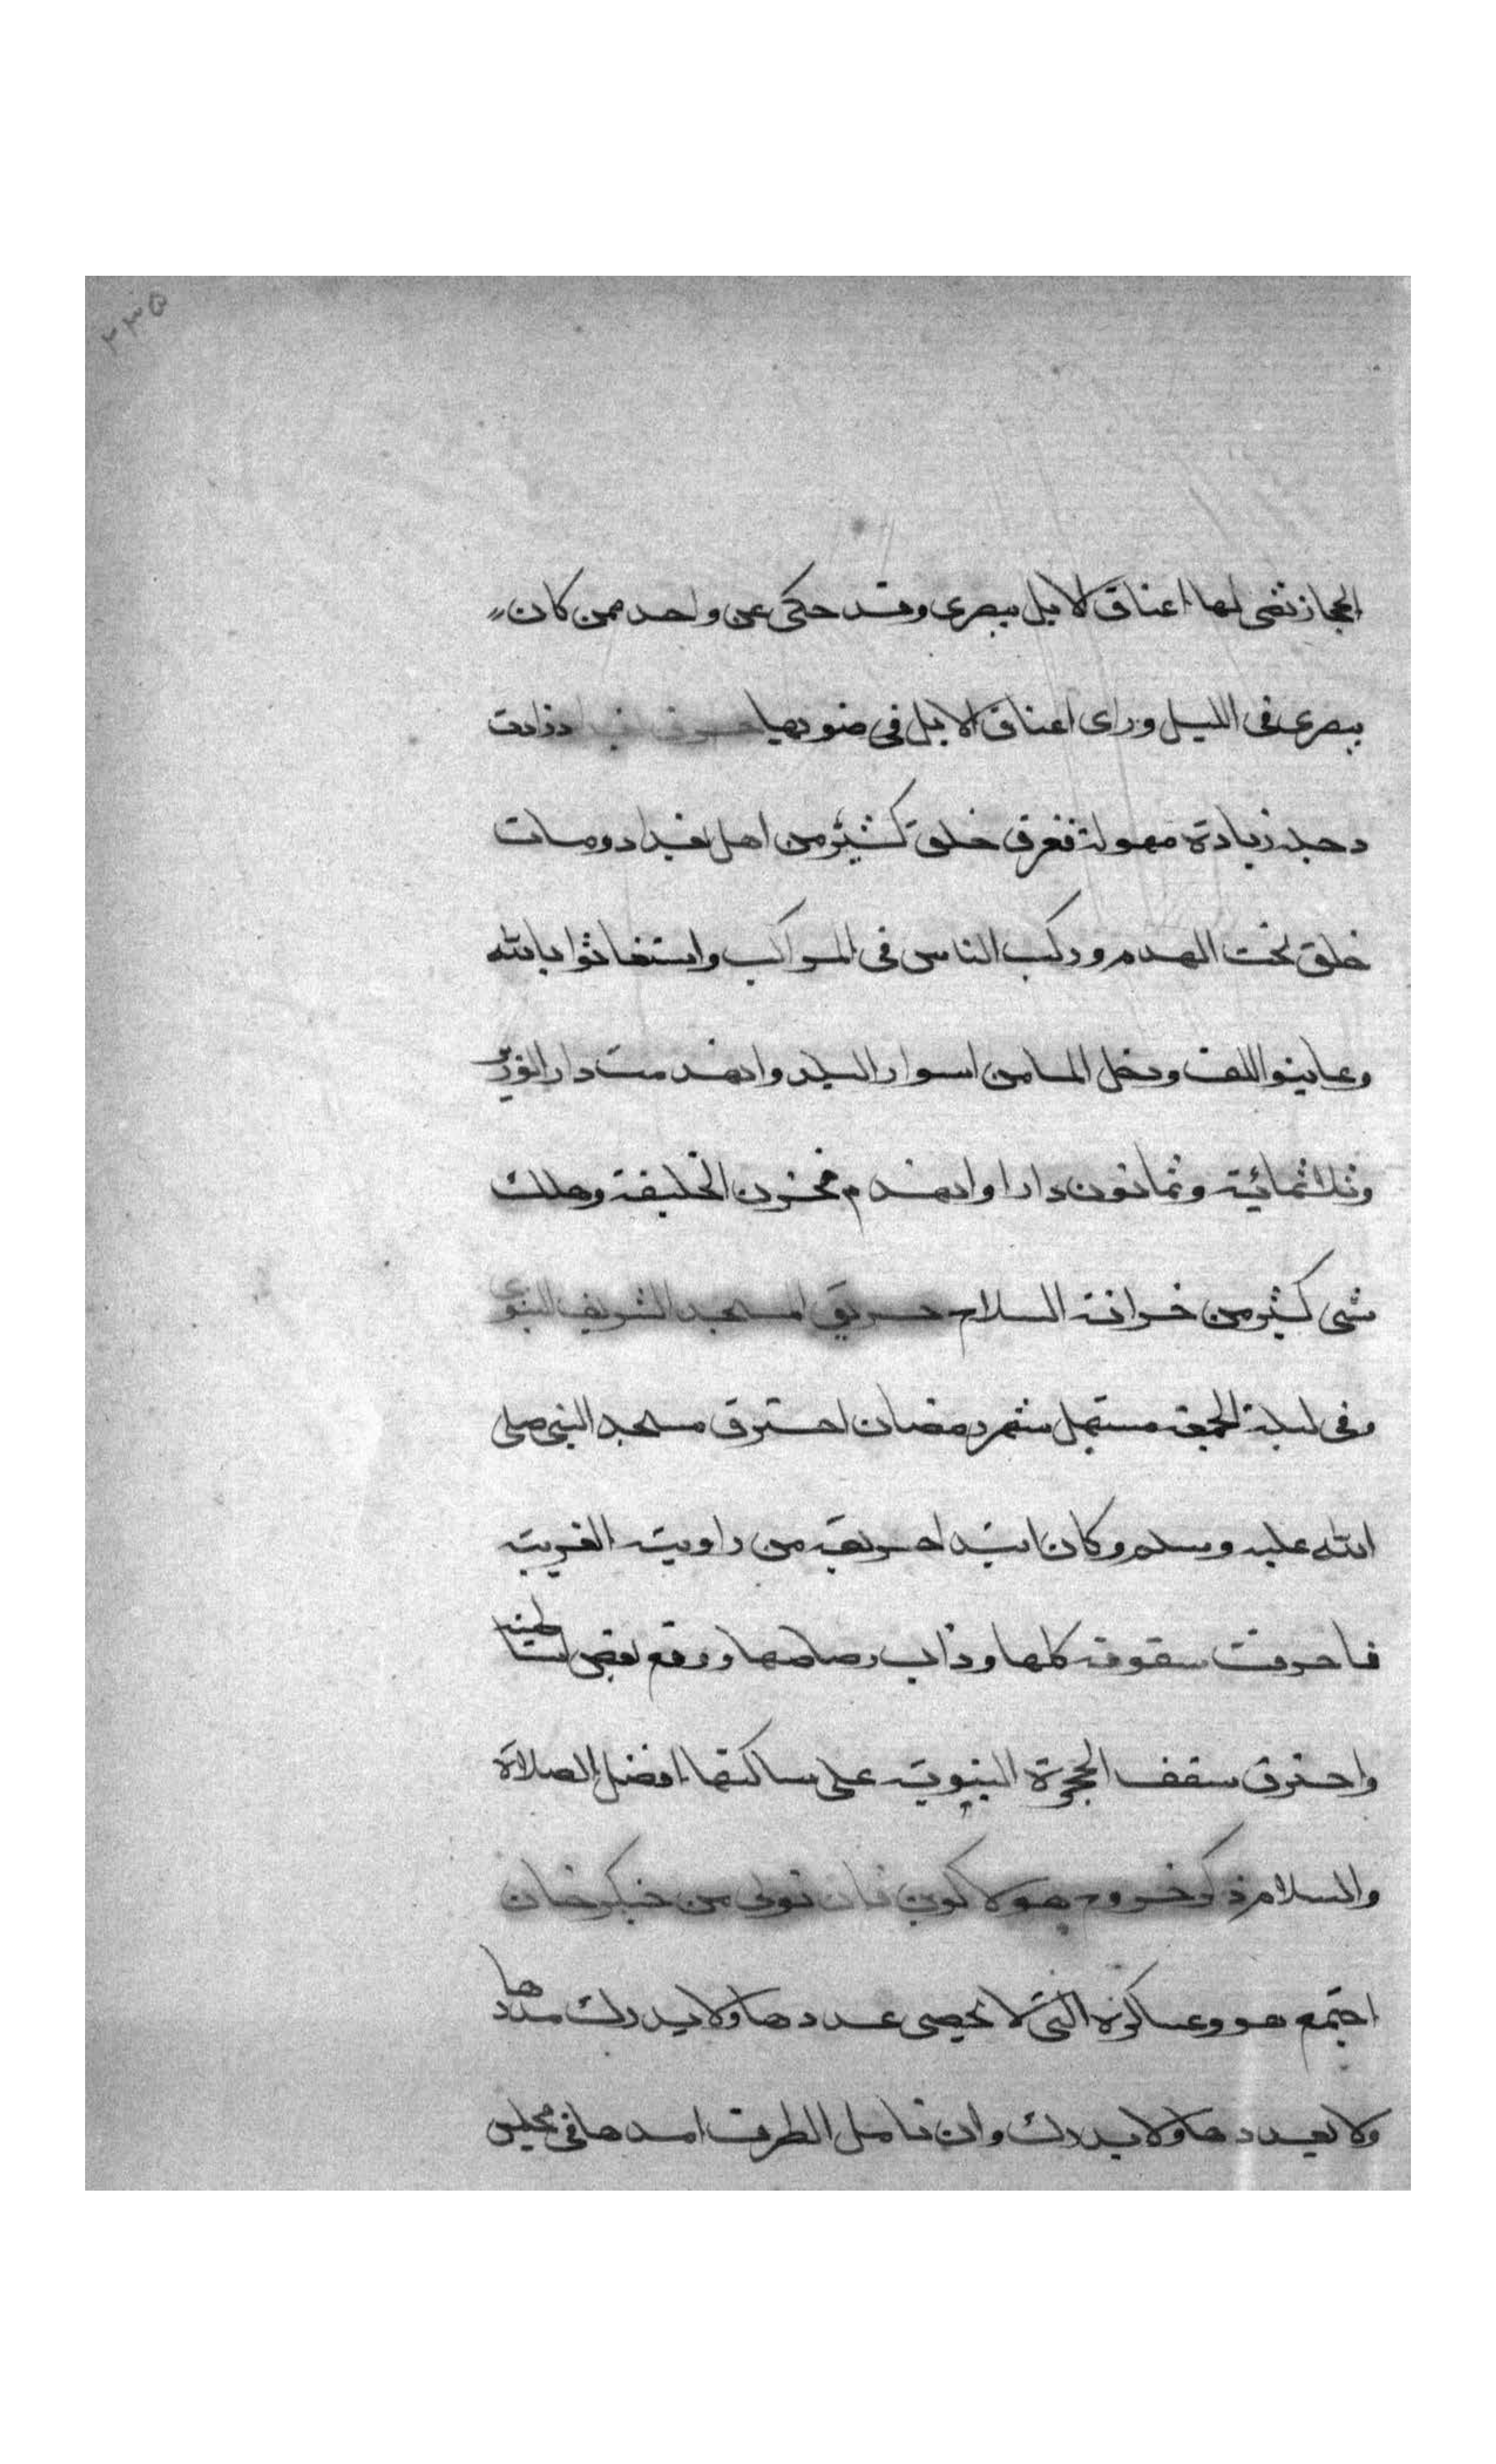 ٢٣٥
الحجاز تضى لها اعناق الابل ببصرى وقد حكى عن واحد ممن كان
ببصرى فى الليل وراى اعناق الابل فى ضوءها زادت
دجلة زيادة مهولة فغرق خلق كثير من اهل بغداد ومات
خلق تحت الهدم وركب الناس فى المراكب واستغاثوا بالله
وعاينوا التلف ودخل الما من اسوار البلد وانهدمت دار الوزير
وثلاثمائة وثمانون دارا وانهدم مخزن الخليفة وهلك
شى كثير من خزانة السلاح حريق المسجد الشريف النبوى
وفى ليلة الجمعة مستهل شهر رمضان احترق مسجد النبى صلى
الله عليه وسلم وكان ابتدا حريقه من زاويته الغربية
فاحرقت سقوفه كلها وذاب رصاصها ووقع بعض اساطينه
واحترق سقف الحجرة النبوية على ساكنها افضل الصلاة
والسلام ذكر خروج هولاكو بن تولى من جنكزخان
اجتمع هو وعساكره التى لا يحصى عددها ولا يدرك مددها
ولا بعددها ولا يدرك وان تامل الطرف امدها فى مجلس